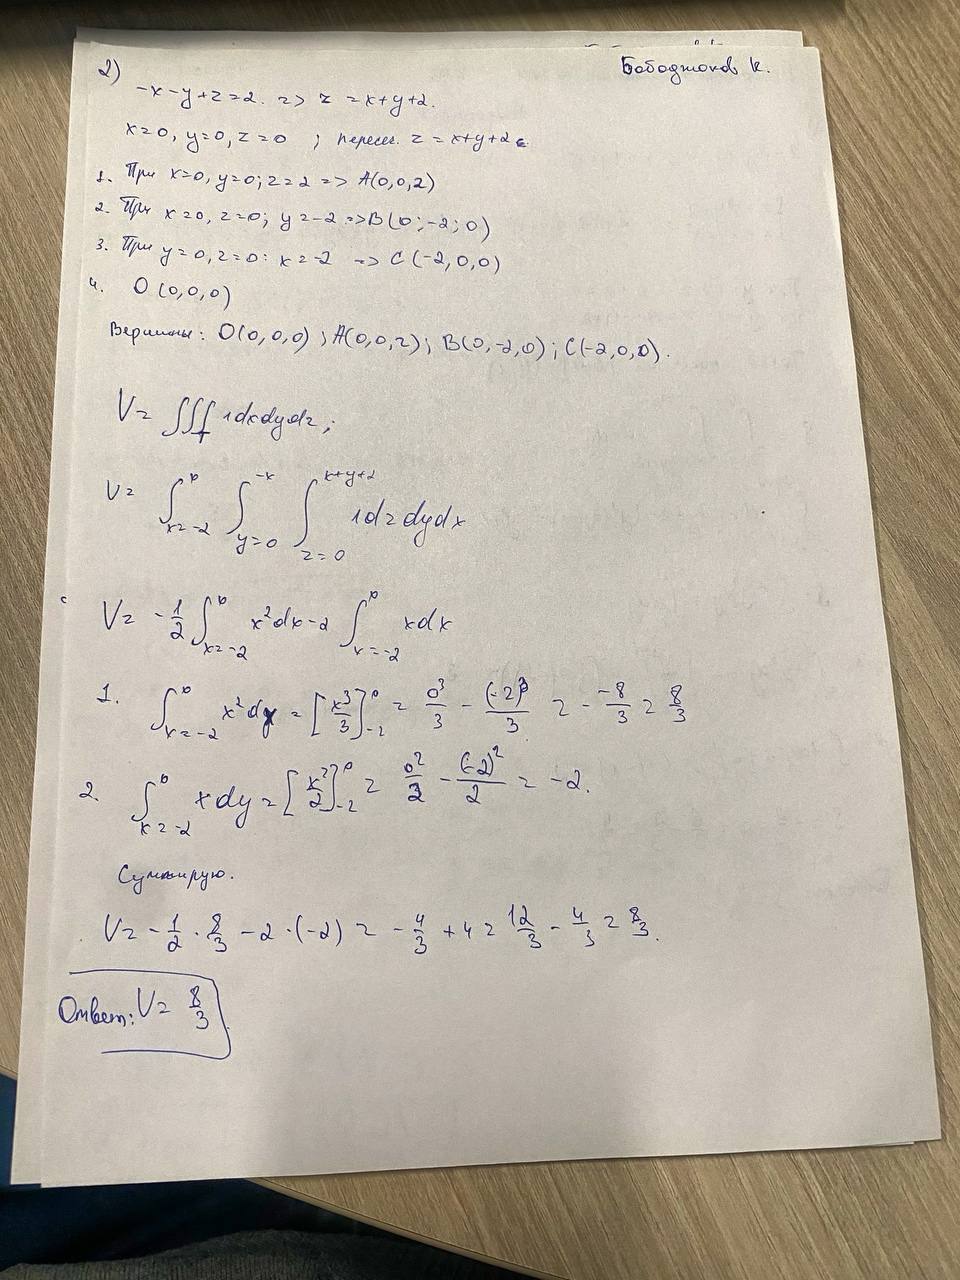 2)
Бабаджонов К.
-x-y+z=2. => z=x+y+2.
x=0, y=0, z=0 ; пересеч. z=x+y+2
1. При x=0, y=0; z=2 => A(0,0,2)
2. При x=0, z=0; y=-2 => B(0;-2;0)
3. При y=0, z=0: x=-2 => C(-2,0,0)
4. O(0,0,0)
Вершины: O(0,0,0); A(0,0,2); B(0,-2,0); C(-2,0,0).
V= ∭_T 1dxdydz;
V= ∫_{x=-2}^{0} ∫_{y=0}^{-x} ∫_{z=0}^{x+y+2} 1dzdydx
V= -1/2 ∫_{x=-2}^{0} x²dx-2 ∫_{x=-2}^{0} xdx
1. ∫_{x=-2}^{0} x²dx = [x³/3]_{-2}^{0} = 0³/3 - (-2)³/3 = - -8/3 = 8/3
2. ∫_{x=-2}^{0} xdy = [x²/2]_{-2}^{0} = 0²/2 - (-2)²/2 = -2.
Суммирую.
V= -1/2 · 8/3 -2 ·(-2) = -4/3 +4 = 12/3 - 4/3 = 8/3.
Ответ: V= 8/3